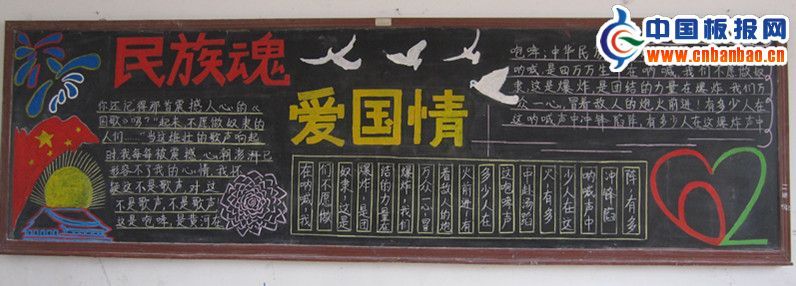 中国板报网
www.cnbanbao.cn
民族魂
爱国情
你还记得那首震撼人心的《
国歌》吗?"起来,不愿做奴隶的
人们……"当这雄壮的歌声响起
时,我每每被震撼,心潮澎湃已
形容不了我的心情,我怀
疑这不是歌声,对,这
不是歌声,不是歌声,
这是咆哮,是黄河在
咆哮,中华民族
呐喊,是四万万生在呐喊,我们不愿做奴
隶,这是爆炸,是团结的力量在爆炸,我们万
众一心,冒着敌人的炮火前进!有多少人在
这呐喊声中冲锋陷阵,有多少人在这爆炸声中
在呐喊,我
们不愿做
奴隶,这是
爆炸,是团
结的力量在
爆炸,我们
万众一心冒
着敌人的炮
火前进!有
多少人在
这咆哮声
中赴汤蹈
火,有多
少人在这
呐喊声中
冲锋陷
阵,有多
62